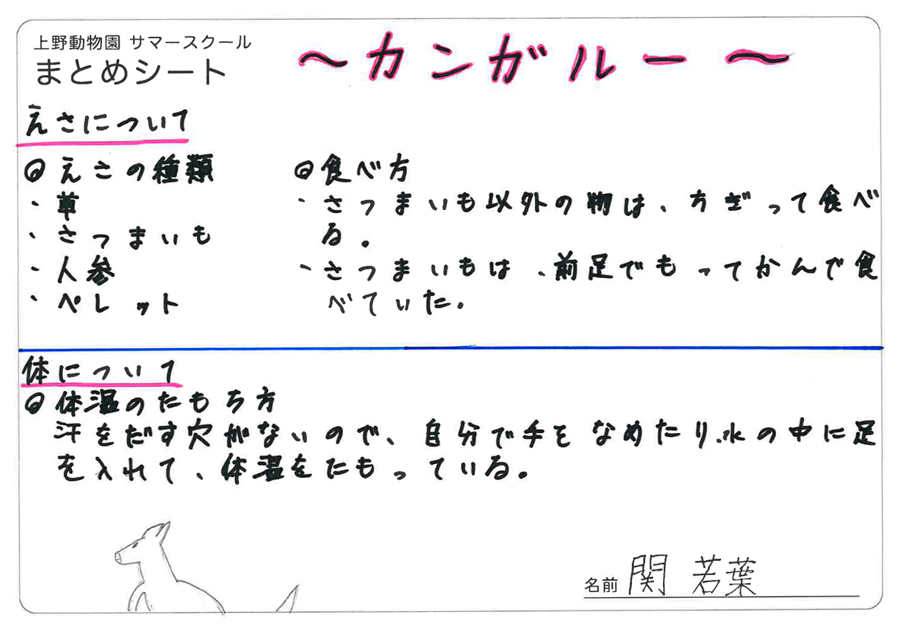 上野動物園 サマースクール
まとめシート
～カンガルー～
えさについて
◎えさの種類
・草
・さつまいも
・人参
・ペレット
◎食べ方
・さつまいも以外の物は、ちぎって食べ
る。
・さつまいもは、前足でもってかんで食
べていた。
体について
◎体温のたもち方
汗をだす穴がないので、自分で手をなめたり、水の中に足
を入れて、体温をたもっている。
名前 関 若葉